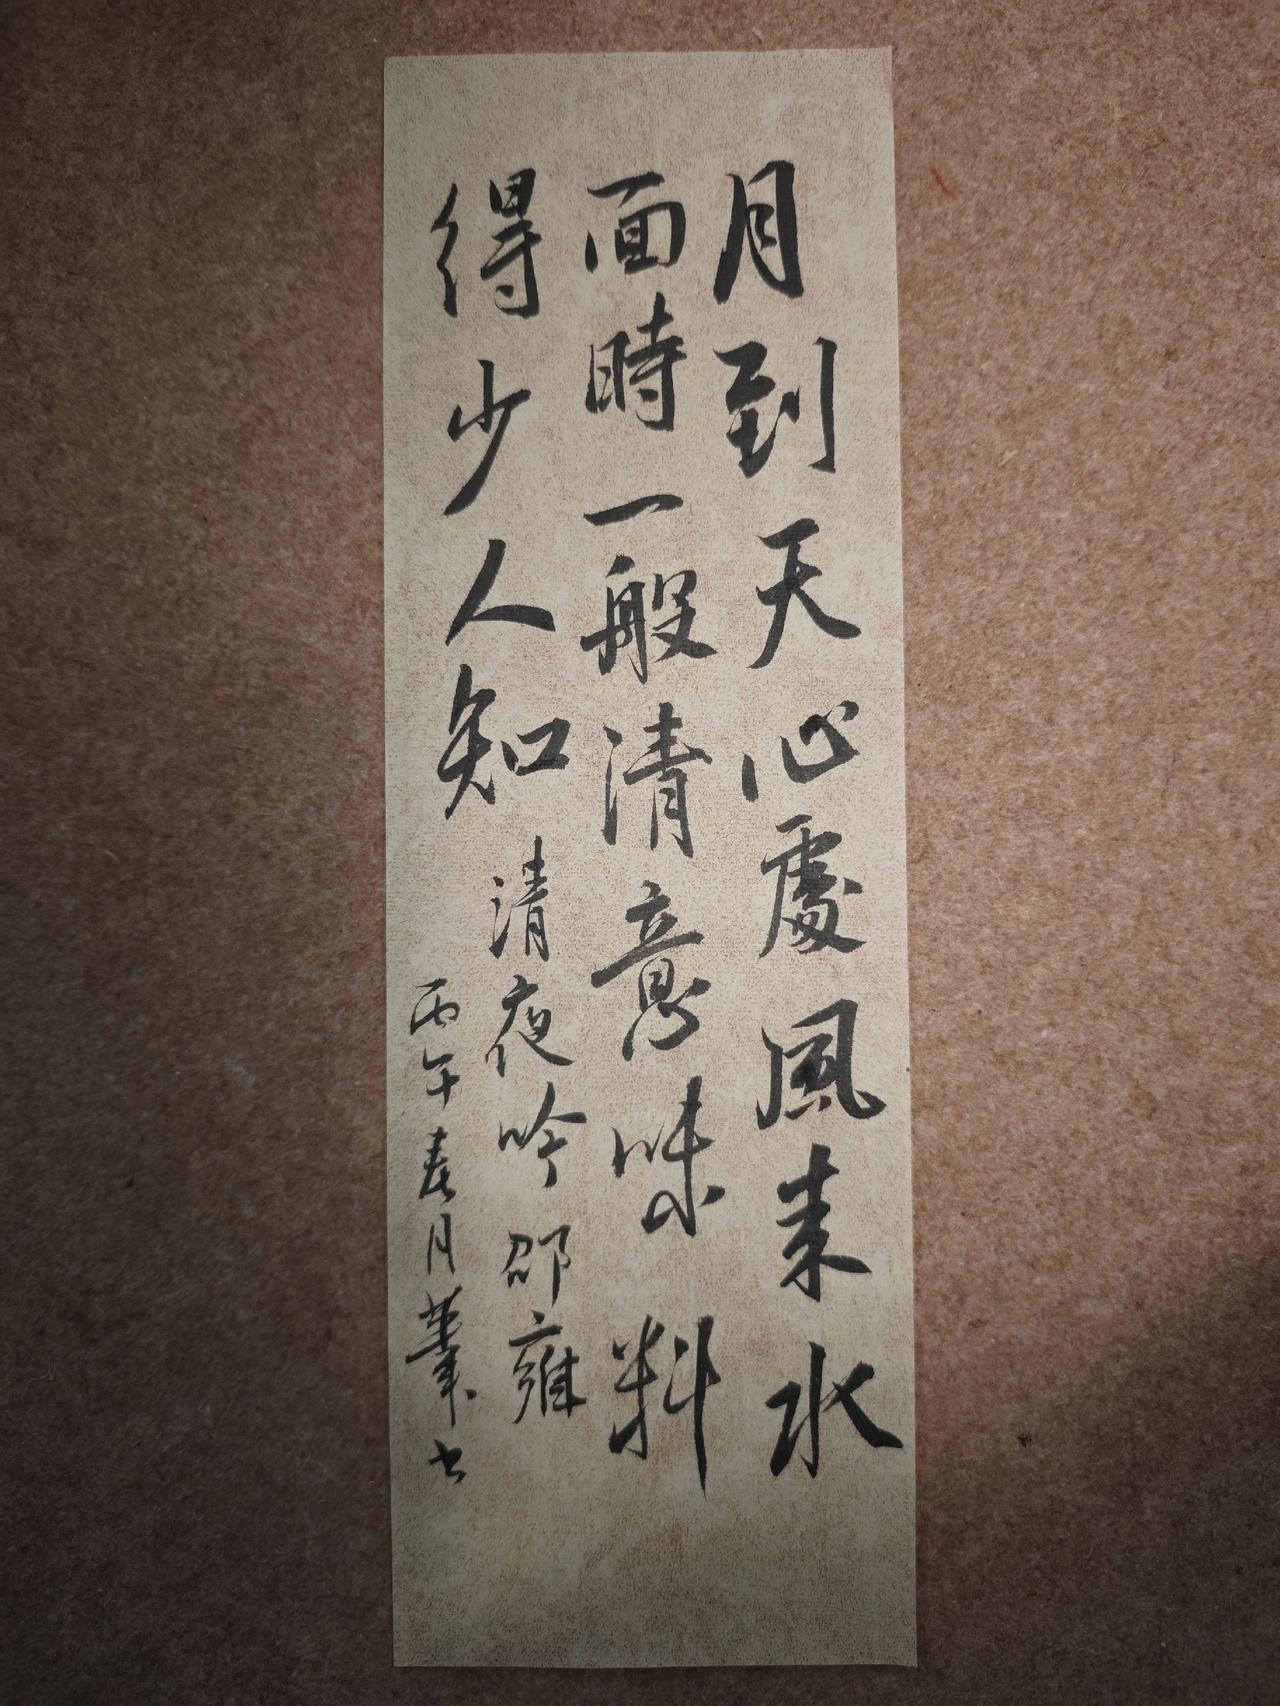 月到天心處風来水
面時一般清意味料
得少人知
清夜吟 邵雍
丙午春月肇书